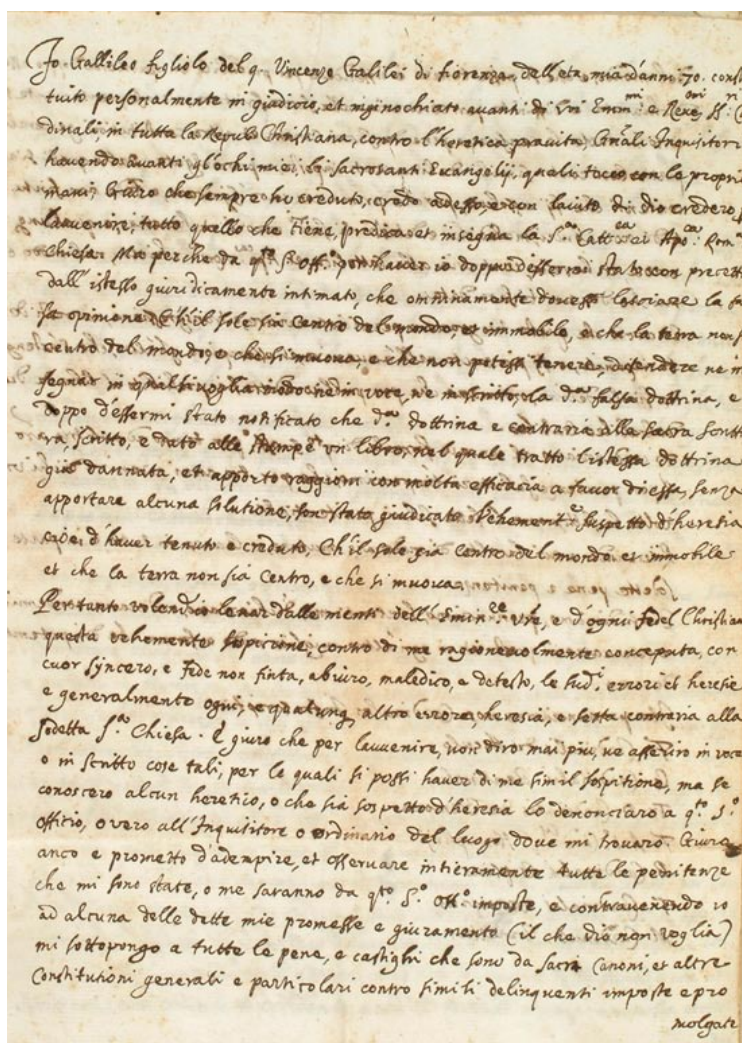 Io Gallileo figliolo del q. Vincenzo Galilei di fiorenza dell'età mia d'anni 70. consti
tuito personalmente in giudicio, et inginochiato avanti di Vri Emm.mi e Reve.mi SS.ri
dinali, in tutta la Repub. Christiana, contro l'heretica pravita Gnāli Inquisitori
havendo avanti gl'ochi miei li sacrosanti Evangelij, quali tocco con le proprie
mani, Giuro che sempre ho creduto, credo adesso, e con l'aiuto di dio credero p
l'avvenire, tutto quello che tiene, predica et insegna la S.ta Catt.ca et Apo.ca Rom.a
Chiesa. Ma perche da q.to S.to Off.o per haver io doppo d'essermi stato con precetto
dall'istesso giuridicamente intimato, che omninamente dovessi lasciare la fal
sa opinione Ch'il sole sia Centro del mondo, et immobile, e che la terra non sia
centro del mondo, e che si muova, e che non potessi tenere, difendere ne in
segnar in qualsivoglia modo, ne in voce, ne in scritto, la d.ta falsa dottrina, e
doppo d'essermi stato notificato che d.ta dottrina e contraria alla sacra scrittu
ra, scritto, e dato alle stampe un libro, nel quale tratto l'istessa dottrina
già dannata, et apporto raggioni con molta efficacia a favor di essa, senza
apportare alcuna solutione, son stato giudicato Vehement.e suspetto d'heresia
cioè, d'haver tenuto e creduto, Ch'il sole sia Centro del mondo et immobile
et che la terra non sia Centro, e che si muova.
Per tanto volend'io levar dalle menti dell'Emin.ze Vre, e d'ogni fedel Christiano
questa vehemente suspicione, contro di me ragionevolmente conceputa, con
cuor syncero, e fede non finta, abiuro, maledico, e detesto, le sud.i errori et heresie
e generalmente ogni, e qualunq altro errore, heresia, e setta contraria alla
sodetta S.ta Chiesa. E giuro che per l'avvenire, non diro mai più, ne asseriro in voce
o in scritto cose tali, per le quali si possi haver di me simil sospitione, ma se
conoscero alcun heretico, o che sia sospetto d'heresia lo denonciaro a q.to S.o
officio, o vero all'Inquisitore o ordinario del luogo dove mi trovaro. Giuro
anco e prometto d'adempire, et osservare intieramente tutte le penitenze
che mi sono state, o me saranno da q.to S.o Off.o imposte, e contravenendo io
ad alcuna delle dette mie promesse e giuramento (il che dio non voglia)
mi sottopongo a tutte le pene, e castighi che sono da sacri Canoni, et altre
Constitutioni generali e particolari contro simili delinquenti imposte e pro
molgate